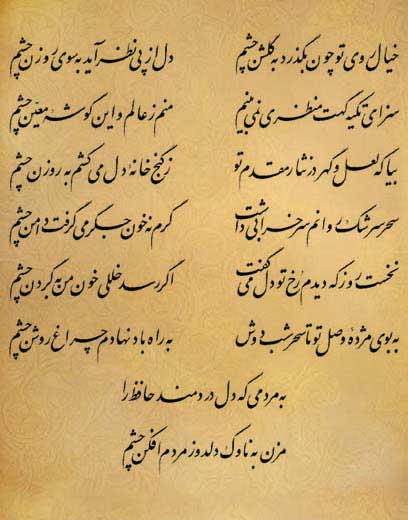 خیال روی تو چون بگذرد به گلشن چشم
دل از پی نظر آید به سوی روزن چشم
سزای تکیه گهت منظری نمی بینم
منم ز عالم و این گوشه معیّن چشم
بیا که لعل و گهر در نثار مقدم تو
ز گنج خانهٔ دل می کشم به روزن چشم
سحر سرشک روانم سر خرابی داشت
گرم نه خون جگر می گرفت دامن چشم
نخست روز که دیدم رخ تو دل می گفت
اگر رسد خللی خون من به گردن چشم
به بوی مژدهٔ وصل تو تا سحر شب دوش
به راه باد نهادم چراغ روشن چشم
به مردمی که دل دردمند حافظ را
مزن به ناوک دلدوز مردم افکن چشم